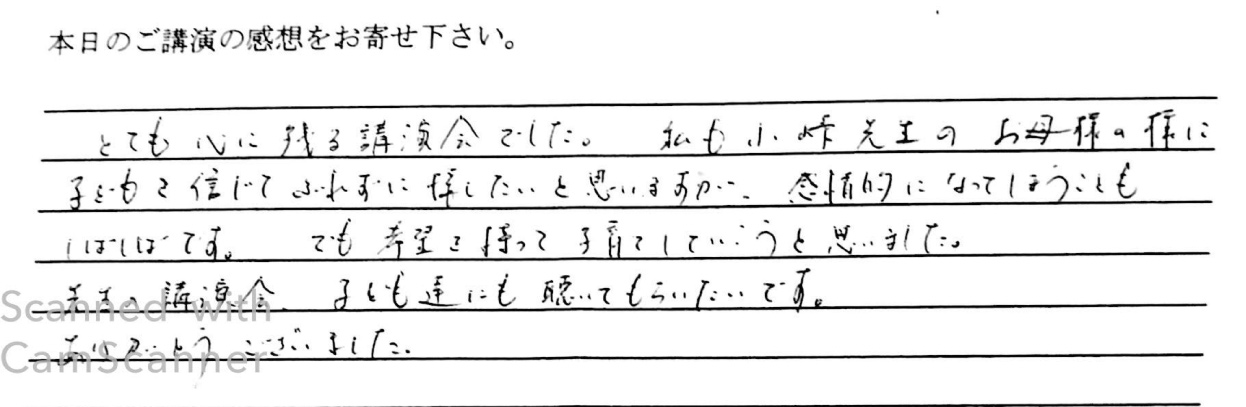 本日のご講演の感想をお寄せ下さい。
とても心に残る講演会でした。 私も小峠先生のお母様の様に
子どもを信じてぶれずに接したいと思いますが、感情的になってしまうことも
しばしばです。 でも希望を持って子育てしていこうと思いました。
先生の講演会、子ども達にも聴いてもらいたいです。
ありがとうございました。
Scanned with
CamScanner